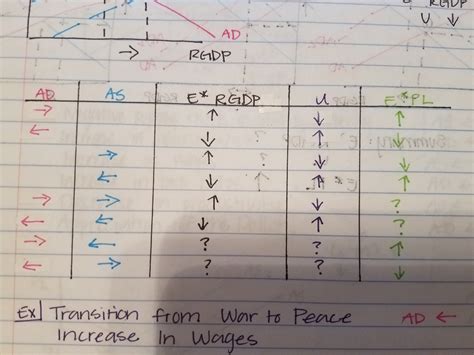 RGDP
U ↓
AD
→ RGDP
AD AS E* RGDP U E* PL
→ ↑ ↓ ↑
← ↓ ↑ ↓
→ ↑ ↓ ↓
← ↓ ↑ ↑
→ → ↑ ↓ ?
← ← ↓ ↑ ?
→ ← ? ? ↑
← → ? ? ↓
Ex Transition from War to Peace AD ←
Increase In Wages